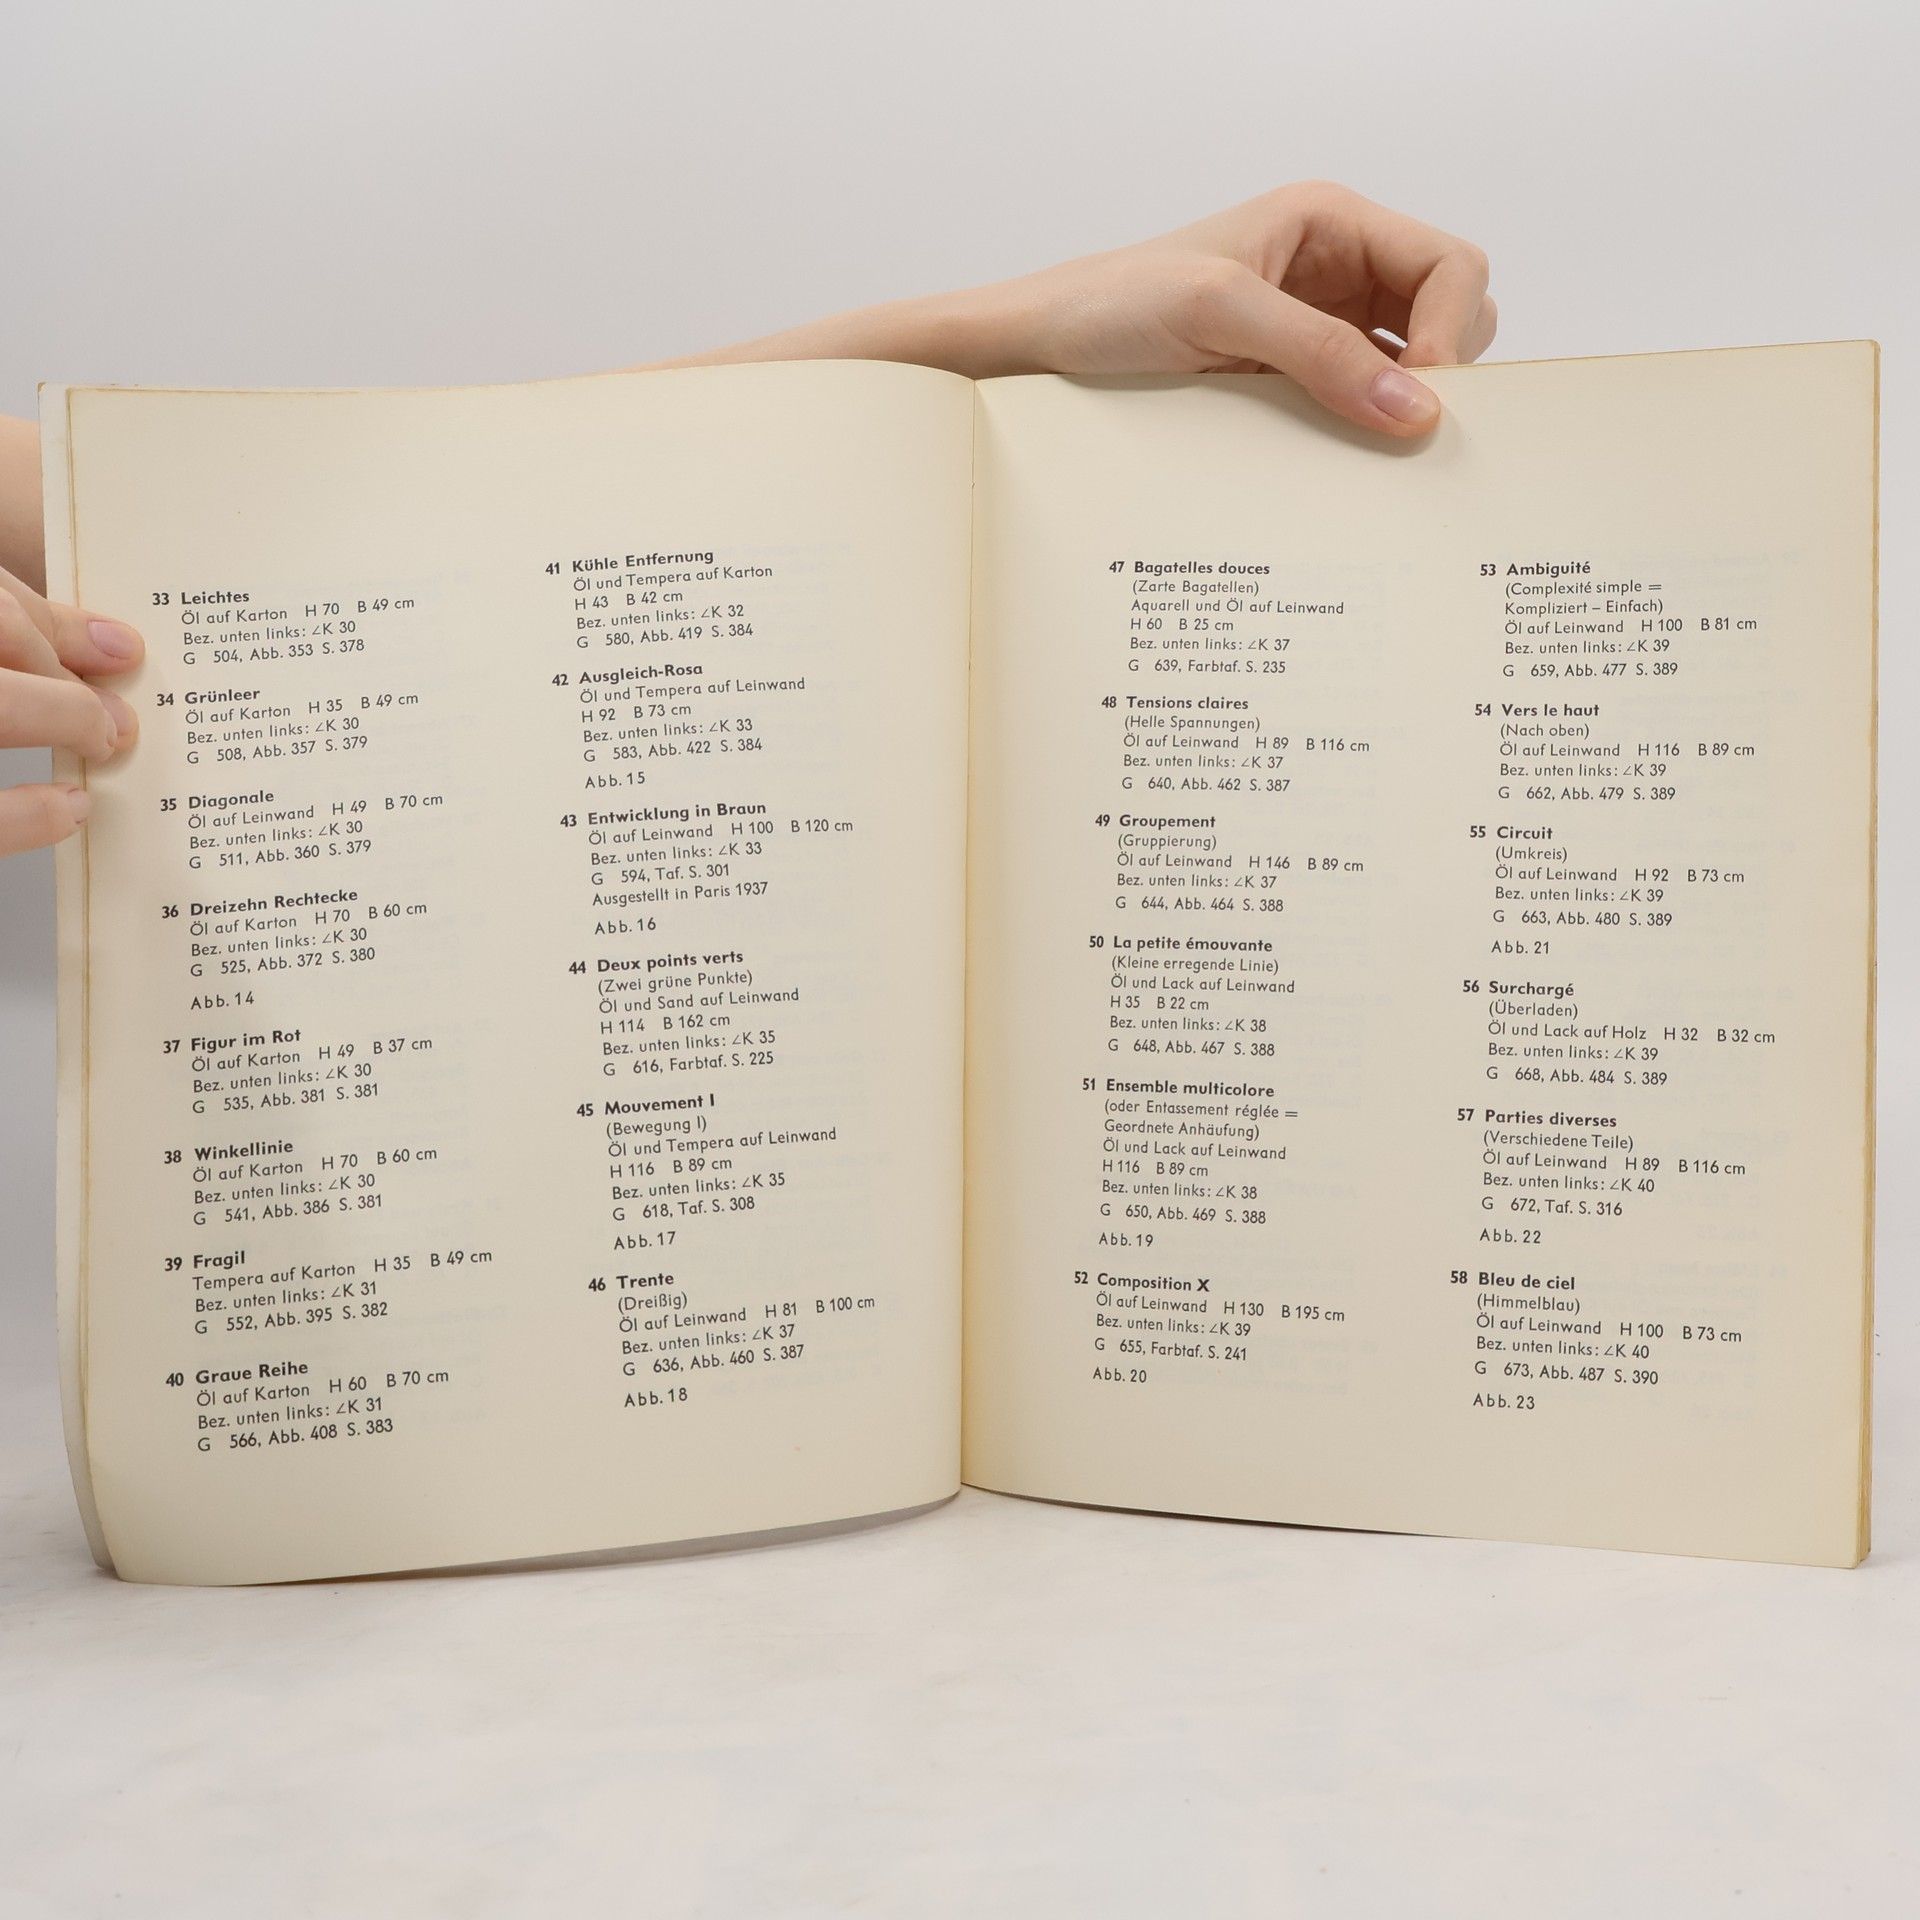 33 Leichtes
Öl auf Karton H 70 B 49 cm
Bez. unten links: ∠K 30
G 504, Abb. 353 S. 378
34 Grünleer
Öl auf Karton H 35 B 49 cm
Bez. unten links: ∠K 30
G 508, Abb. 357 S. 379
35 Diagonale
Öl auf Leinwand H 49 B 70 cm
Bez. unten links: ∠K 30
G 511, Abb. 360 S. 379
36 Dreizehn Rechtecke
Öl auf Karton H 70 B 60 cm
Bez. unten links: ∠K 30
G 525, Abb. 372 S. 380
Abb. 14
37 Figur im Rot
Öl auf Karton H 49 B 37 cm
Bez. unten links: ∠K 30
G 535, Abb. 381 S. 381
38 Winkellinie
Öl auf Karton H 70 B 60 cm
Bez. unten links: ∠K 30
G 541, Abb. 386 S. 381
39 Fragil
Tempera auf Karton H 35 B 49 cm
Bez. unten links: ∠K 31
G 552, Abb. 395 S. 382
40 Graue Reihe
Öl auf Karton H 60 B 70 cm
Bez. unten links: ∠K 31
G 566, Abb. 408 S. 383
41 Kühle Entfernung
Öl und Tempera auf Karton
H 43 B 42 cm
Bez. unten links: ∠K 32
G 580, Abb. 419 S. 384
42 Ausgleich-Rosa
Öl und Tempera auf Leinwand
H 92 B 73 cm
Bez. unten links: ∠K 33
G 583, Abb. 422 S. 384
Abb. 15
43 Entwicklung in Braun
Öl auf Leinwand H 100 B 120 cm
Bez. unten links: ∠K 33
G 594, Taf. S. 301
Ausgestellt in Paris 1937
Abb. 16
44 Deux points verts
(Zwei grüne Punkte)
Öl und Sand auf Leinwand
H 114 B 162 cm
Bez. unten links: ∠K 35
G 616, Farbtaf. S. 225
45 Mouvement I
(Bewegung I)
Öl und Tempera auf Leinwand
H 116 B 89 cm
Bez. unten links: ∠K 35
G 618, Taf. S. 308
Abb. 17
46 Trente
(Dreißig)
Öl auf Leinwand H 81 B 100 cm
Bez. unten links: ∠K 37
G 636, Abb. 460 S. 387
Abb. 18
47 Bagatelles douces
(Zarte Bagatellen)
Aquarell und Öl auf Leinwand
H 60 B 25 cm
Bez. unten links: ∠K 37
G 639, Farbtaf. S. 235
48 Tensions claires
(Helle Spannungen)
Öl auf Leinwand H 89 B 116 cm
Bez. unten links: ∠K 37
G 640, Abb. 462 S. 387
49 Groupement
(Gruppierung)
Öl auf Leinwand H 146 B 89 cm
Bez. unten links: ∠K 37
G 644, Abb. 464 S. 388
50 La petite émouvante
(Kleine erregende Linie)
Öl und Lack auf Leinwand
H 35 B 22 cm
Bez. unten links: ∠K 38
G 648, Abb. 467 S. 388
51 Ensemble multicolore
(oder Entassement réglée =
Geordnete Anhäufung)
Öl und Lack auf Leinwand
H 116 B 89 cm
Bez. unten links: ∠K 38
G 650, Abb. 469 S. 388
Abb. 19
52 Composition X
Öl auf Leinwand H 130 B 195 cm
Bez. unten links: ∠K 39
G 655, Farbtaf. S. 241
Abb. 20
53 Ambiguité
(Complexité simple =
Kompliziert – Einfach)
Öl auf Leinwand H 100 B 81 cm
Bez. unten links: ∠K 39
G 659, Abb. 477 S. 389
54 Vers le haut
(Nach oben)
Öl auf Leinwand H 116 B 89 cm
Bez. unten links: ∠K 39
G 662, Abb. 479 S. 389
55 Circuit
(Umkreis)
Öl auf Leinwand H 92 B 73 cm
Bez. unten links: ∠K 39
G 663, Abb. 480 S. 389
Abb. 21
56 Surchargé
(Überladen)
Öl und Lack auf Holz H 32 B 32 cm
Bez. unten links: ∠K 39
G 668, Abb. 484 S. 389
57 Parties diverses
(Verschiedene Teile)
Öl auf Leinwand H 89 B 116 cm
Bez. unten links: ∠K 40
G 672, Taf. S. 316
Abb. 22
58 Bleu de ciel
(Himmelblau)
Öl auf Leinwand H 100 B 73 cm
Bez. unten links: ∠K 40
G 673, Abb. 487 S. 390
Abb. 23